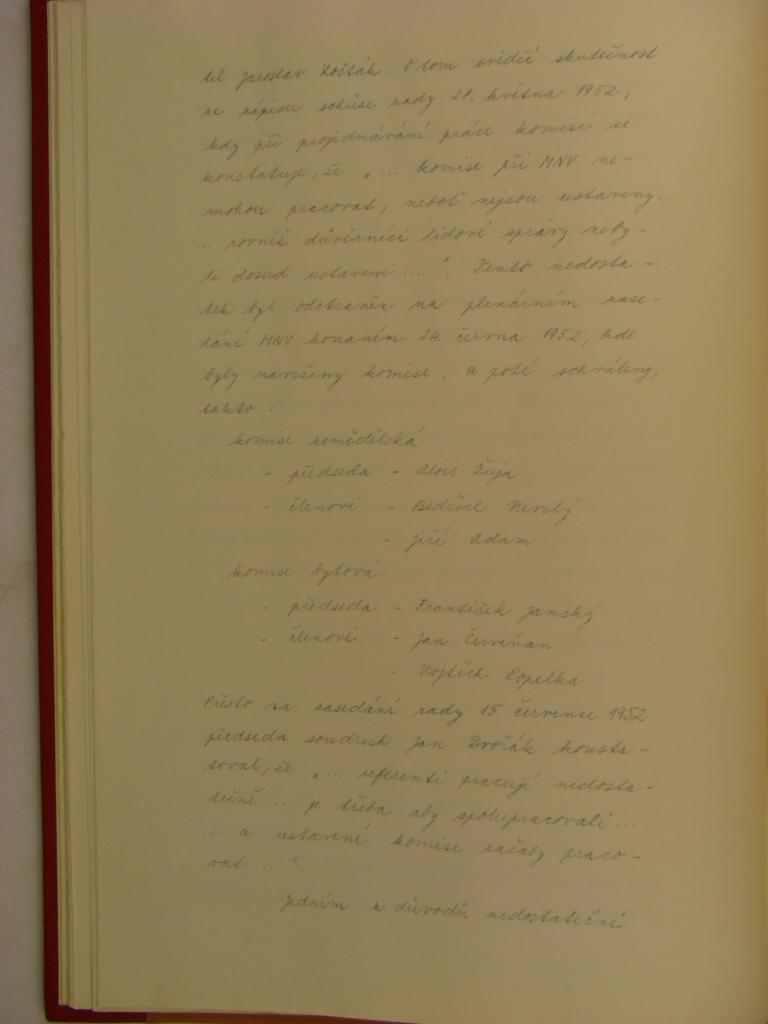 tel Jaroslav Košťák. O tom svědčí skutečnost
ze zápisu schůze rady 28. května 1952,
kdy při projednávání práce komisí se
konstatuje, že „... komise při MNV ne-
mohou pracovat, neboť nejsou ustaveny...
... rovněž důvěrníci lidové správy neby-
li dosud ustaveni ...“. Tento nedosta-
tek byl odstraněn na plenárním zase-
dání MNV konaném 24. června 1952, kde
byly navrženy komise, a poté schváleny,
takto :
komise zemědělská
- předseda - Alois
- členové - Bedřich
- Jiří Adam
komise bytová
- předseda - František Janský
- členové - Jan Červeňan
- Vojtěch Kopelka
Přesto na zasedání rady 15. července 1952
předseda soudruh Jan Dvořák konsta-
toval, že „... referenti pracují nedosta-
tečně... je třeba aby spolupracovali...
... a ustavené komise začaly praco-
vat ...“.
Jedním z důvodů nedostatečné